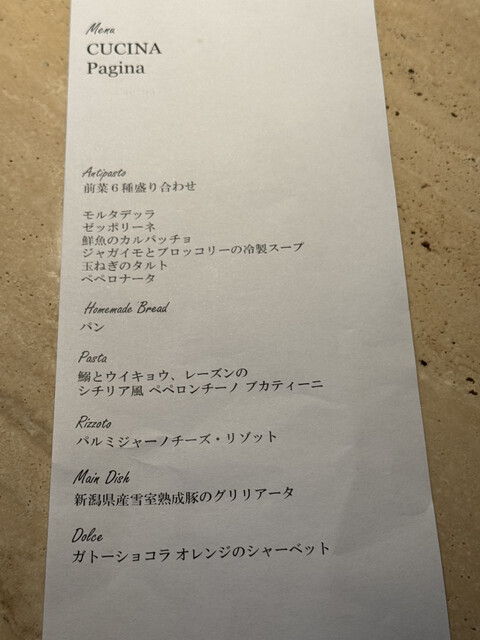 Menu
CUCINA
Pagina
Antipasto
前菜６種盛り合わせ
モルタデッラ
ゼッポリーネ
鮮魚のカルパッチョ
ジャガイモとブロッコリーの冷製スープ
玉ねぎのタルト
ペペロナータ
Homemade Bread
パン
Pasta
鰯とウイキョウ、レーズンの
シチリア風 ペペロンチーノ ブカティーニ
Rizzoto
パルミジャーノチーズ・リゾット
Main Dish
新潟県産雪室熟成豚のグリリアータ
Dolce
ガトーショコラ オレンジのシャーベット